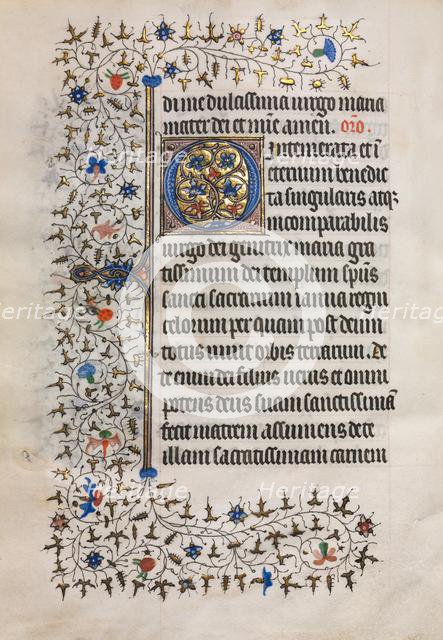 di me dulcissima uirgo maria
mater dei et mīe amen. oro.
O intemerata et ī
eternum benedic
ta singularis atqꝫ
incomparabilis
uirgo dei genitrix maria gra
tissimum dei templum spūs
sancti sacrarium ianua regni
celorum per quam post deum
totus uiuit orbis terrarum. De
te enim dei filius uerus et omni
potens deus suam sanctissimā
fecit matrem assumens de te
illam sacratissimam carnem
Heritage
Heritage
Heritage
Heritage
Heritage
Heritage
Heritage